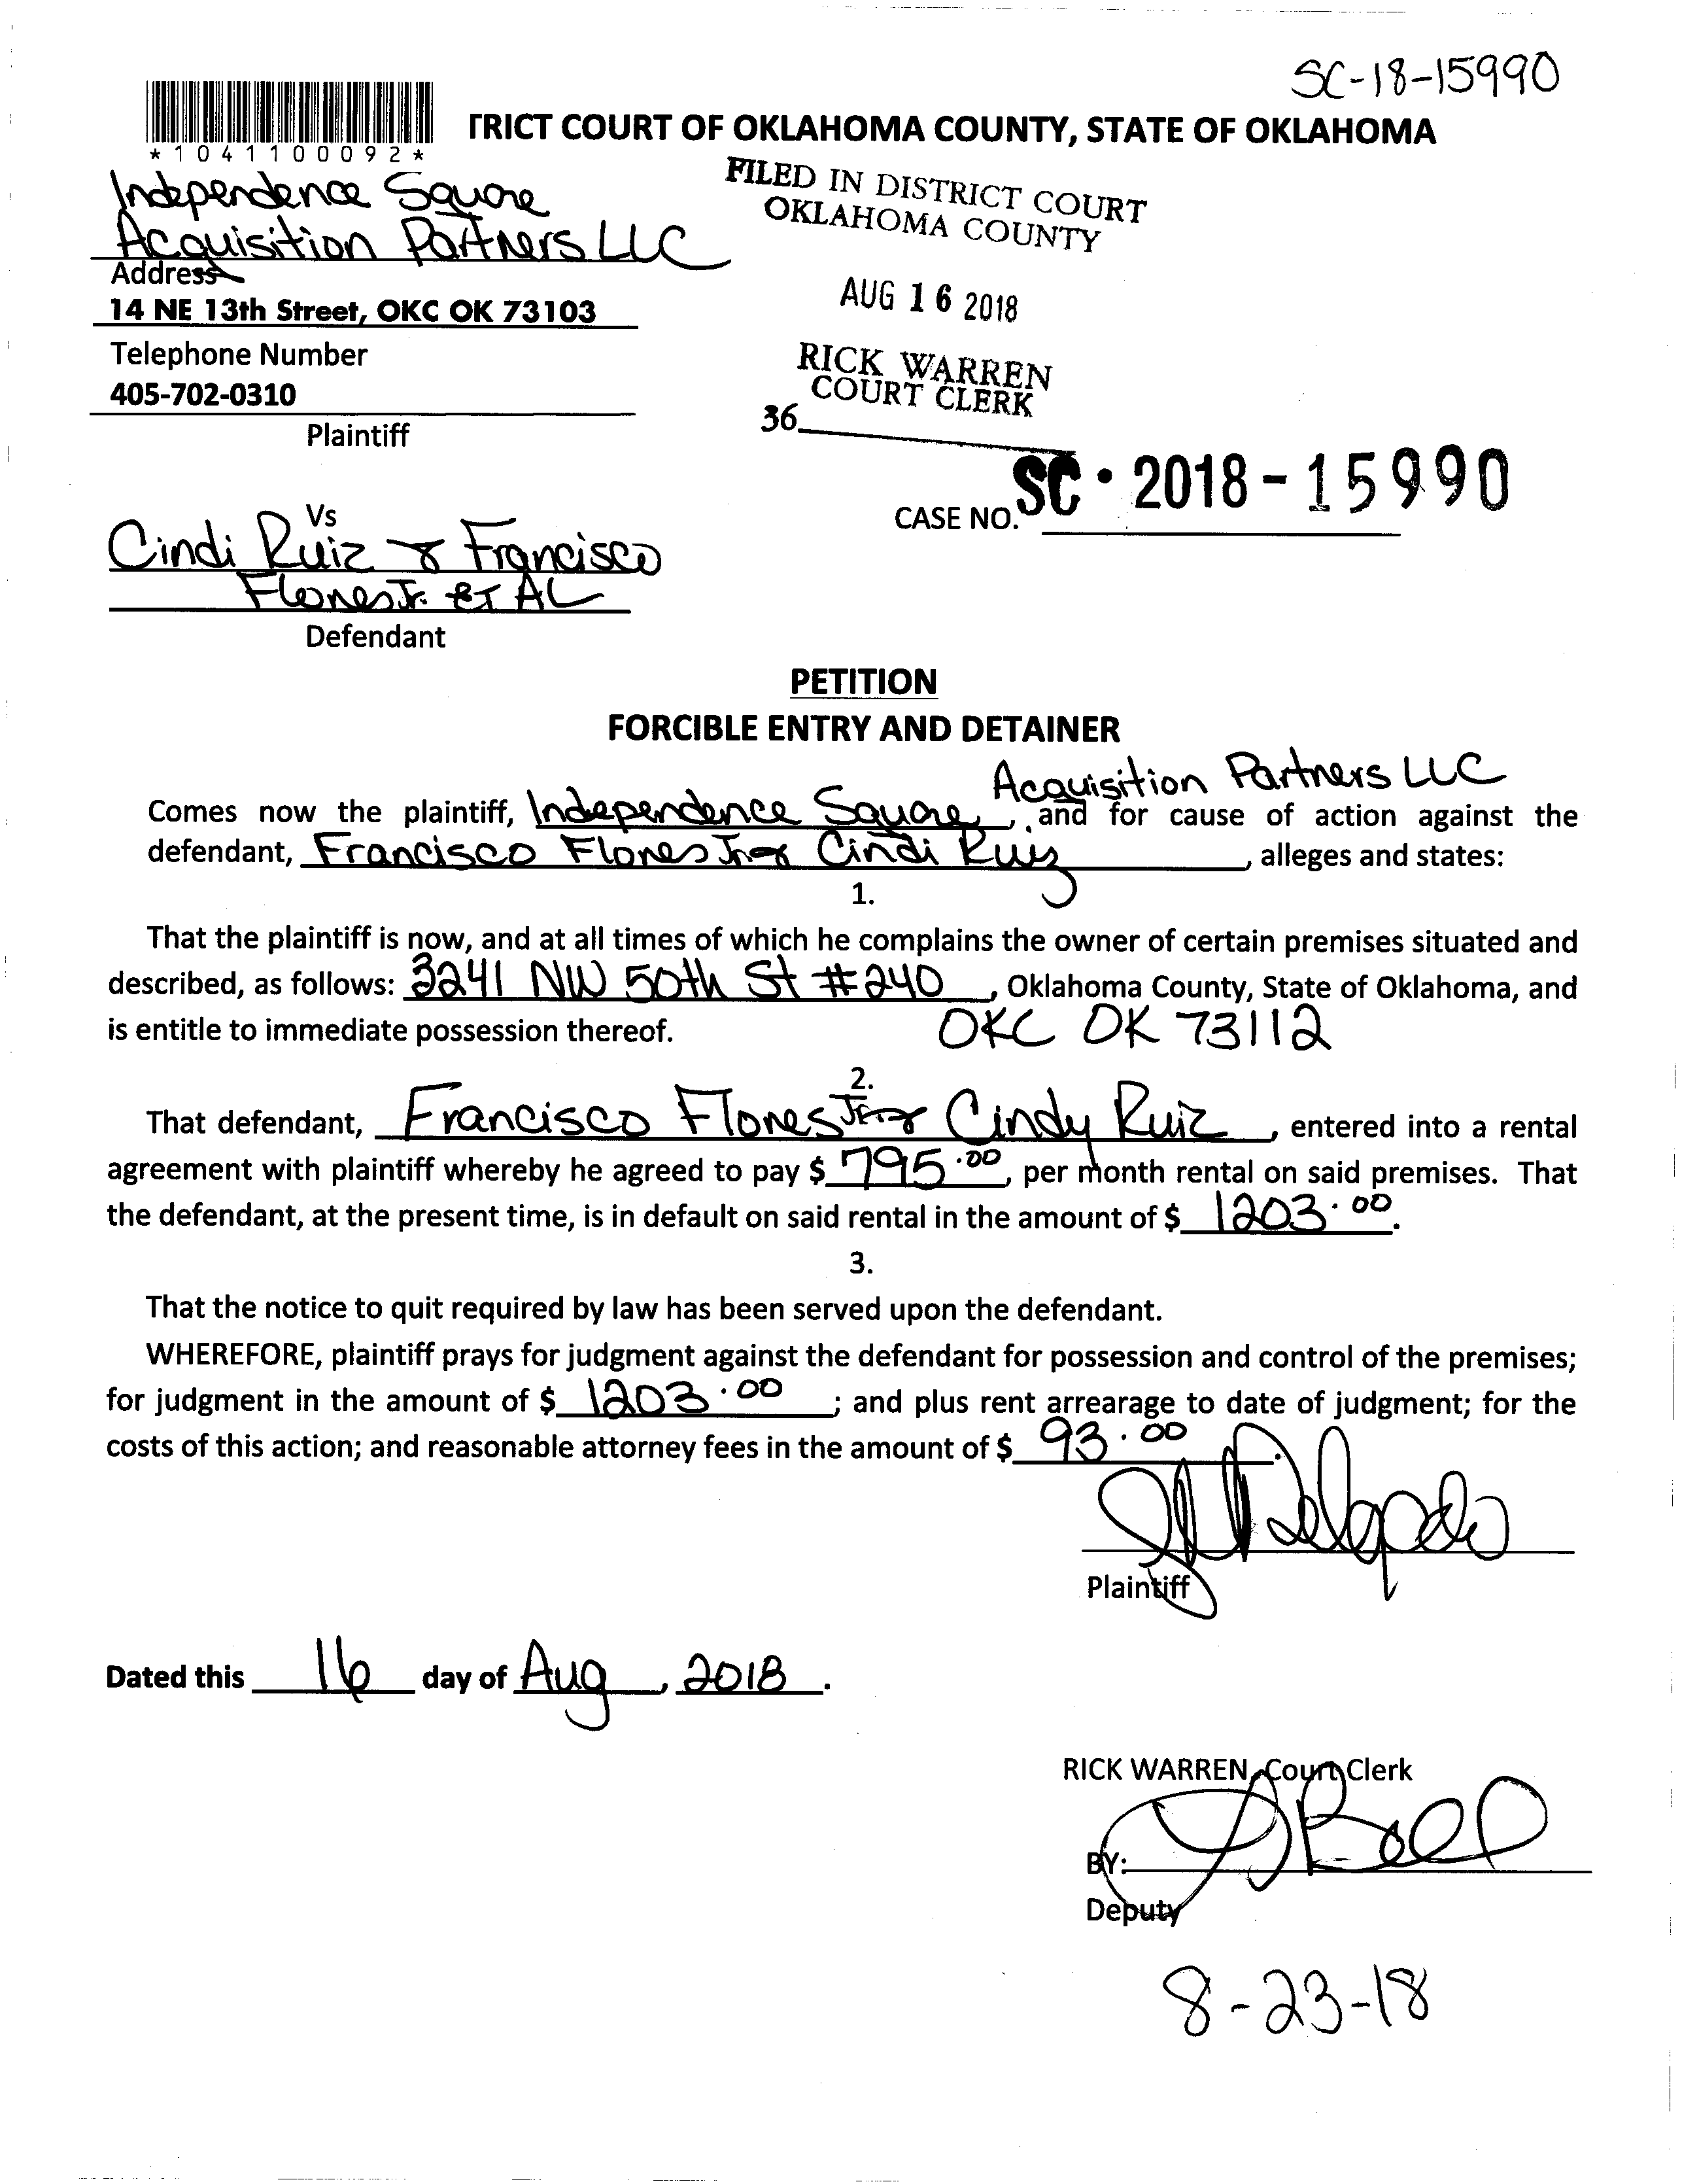 SC-18-15990
*1041100092*
TRICT COURT OF OKLAHOMA COUNTY, STATE OF OKLAHOMA
Independence Square
Acquisition Partners LLC
Address
14 NE 13th Street, OKC OK 73103
Telephone Number
405-702-0310
Plaintiff
FILED IN DISTRICT COURT
OKLAHOMA COUNTY
AUG 16 2018
RICK WARREN
COURT CLERK
36
CASE NO. SC · 2018-15990
Vs
Cindi Ruiz & Francisco
Flores Jr. ET AL
Defendant
PETITION
FORCIBLE ENTRY AND DETAINER
Acquisition Partners LLC
Comes now the plaintiff, Independence Square, and for cause of action against the
defendant, Francisco Flores Jr & Cindi Ruiz, alleges and states:
1.
That the plaintiff is now, and at all times of which he complains the owner of certain premises situated and
described, as follows: 3241 NW 50th St #240, Oklahoma County, State of Oklahoma, and
is entitle to immediate possession thereof. OKC OK 73112
2.
That defendant, Francisco Flores Jr & Cindy Ruiz, entered into a rental
agreement with plaintiff whereby he agreed to pay $ 795.00, per month rental on said premises. That
the defendant, at the present time, is in default on said rental in the amount of $ 1203.00.
3.
That the notice to quit required by law has been served upon the defendant.
WHEREFORE, plaintiff prays for judgment against the defendant for possession and control of the premises;
for judgment in the amount of $ 1203.00 ; and plus rent arrearage to date of judgment; for the
costs of this action; and reasonable attorney fees in the amount of $ 93.00.
Delgado
Plaintiff
Dated this 16 day of Aug, 2018.
RICK WARREN, Court Clerk
BY:
Deputy
8-23-18